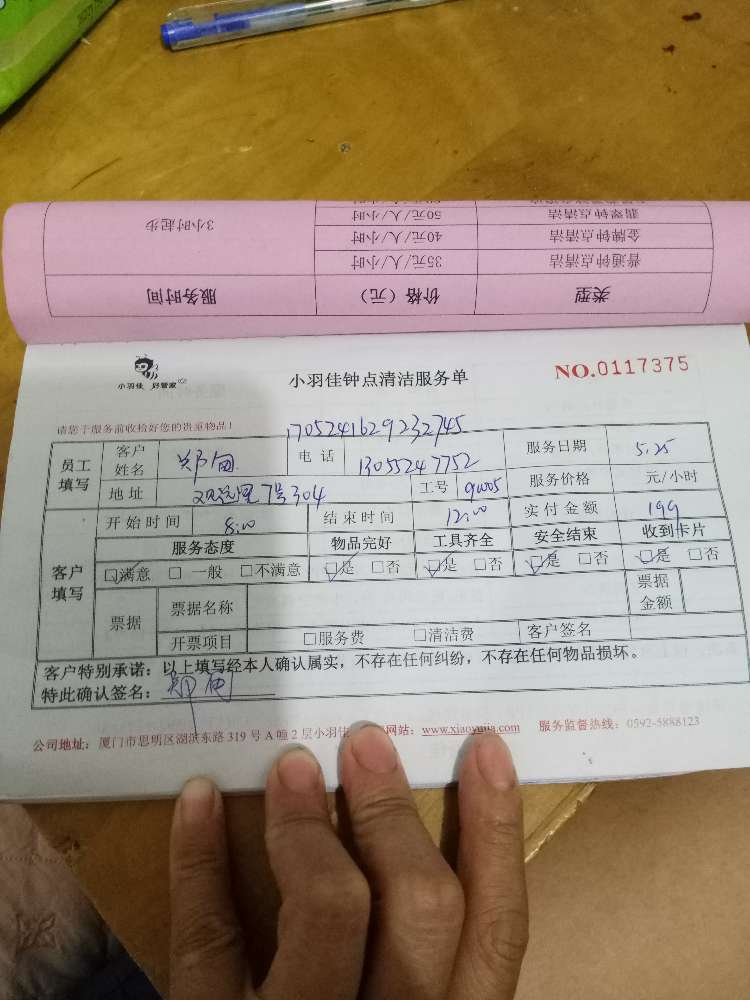 翡翠钟点清洁 50元/人/小时 3小时起步
金牌钟点清洁 40元/人/小时
普通钟点清洁 35元/人/小时
类型 价格（元） 服务时间
小羽佳 好管家
小羽佳钟点清洁服务单
NO.0117375
请您于服务前收拾好您的贵重物品！
1705241629232745
员工填写 客户姓名 电话 13055247752 服务日期 5.25
地址 7号304 工号 服务价格 元/小时
客户填写 开始时间 8:00 结束时间 12:00 实付金额 199
服务态度 物品完好 工具齐全 安全结束 收到卡片
☑满意 □一般 □不满意 ☑是 □否 ☑是 □否 ☑是 □否 ☑是 □否
票据 票据名称 票据金额
开票项目 □服务费 □清洁费 客户签名
客户特别承诺：以上填写经本人确认属实，不存在任何纠纷，不存在任何物品损坏。
特此确认签名：
公司地址：厦门市思明区湖滨东路 319 号 A 幢 2 层小羽佳 网站：www.xiaoyujia.com 服务监督热线：0592-5888123